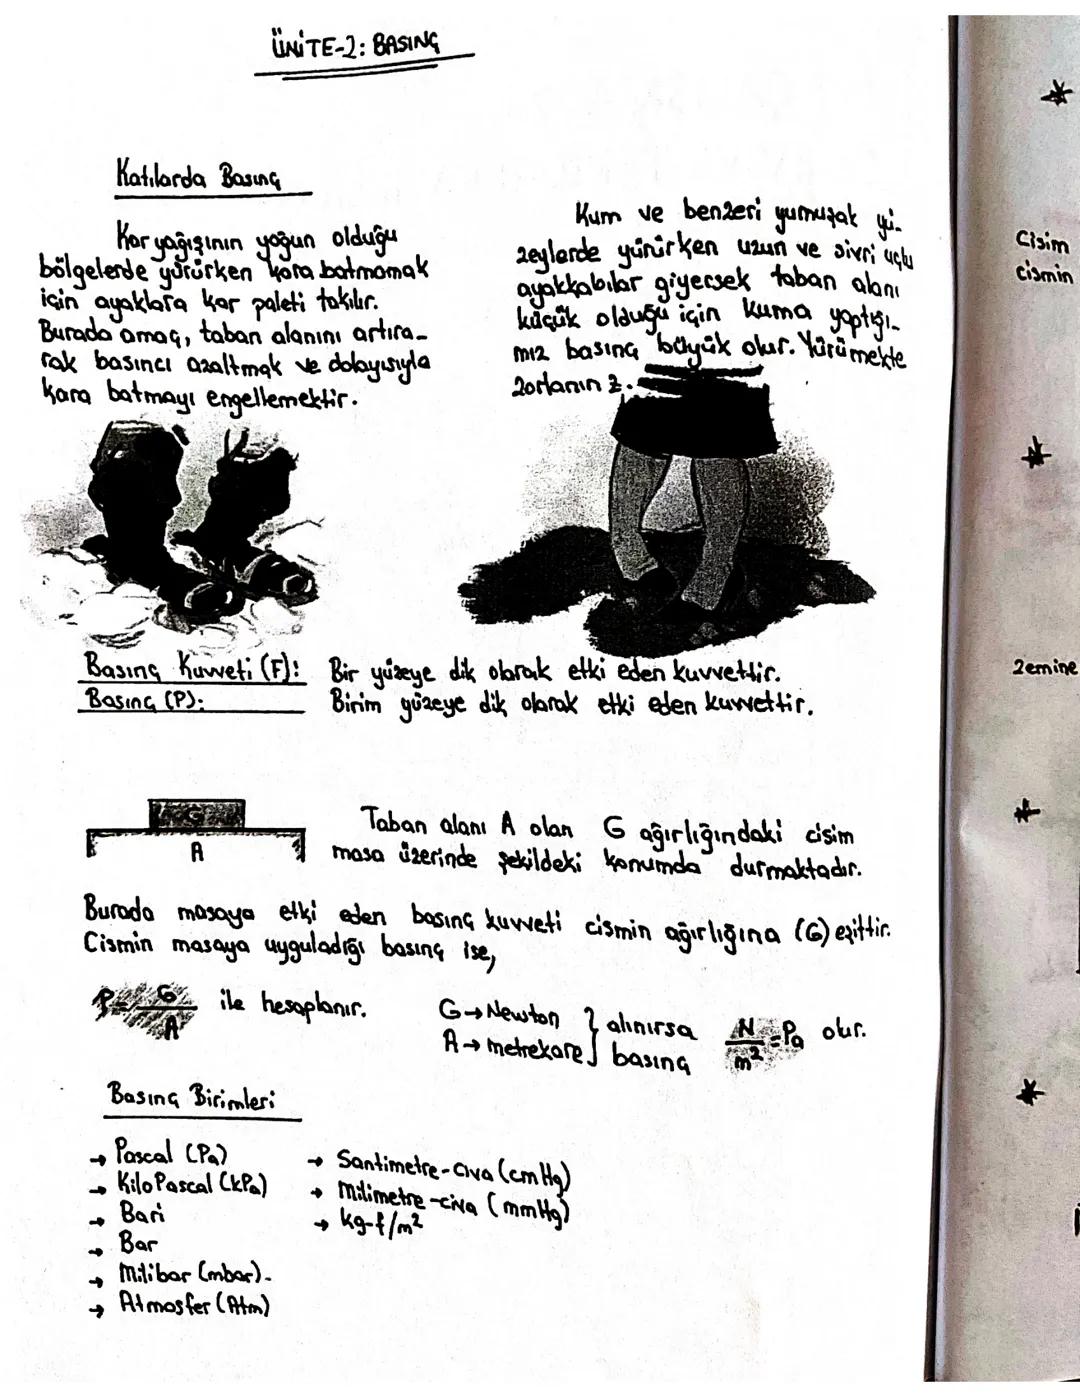 ÜNİTE-2: BASINÇ
Katılarda Basınç
Kar yağışının yoğun olduğu
bölgelerde yürürken kara batmamak
için ayaklara kar paleti takılır.
Burada amaç, taban alanını artıra-
rak basıncı azaltmak ve dolayısıyla
kara batmayı engellemektir.
Kum ve benzeri yumuşak yü-
zeylerde yürürken uzun ve sivri uçlu
ayakkabılar giyersek taban alanı
küçük olduğu için kuma yaptığı-
mız basınç büyük olur. Yürümekte
zorlanırız.
Basınç Kuvveti (F): Bir yüzeye dik olarak etki eden kuvvettir.
Basınç (P): Birim yüzeye dik olarak etki eden kuvvettir.
G
A
Taban alanı A olan G ağırlığındaki cisim
masa üzerinde şekildeki konumda durmaktadır.
Burada masaya etki eden basınç kuvveti cismin ağırlığına (G) eşittir.
Cismin masaya uyguladığı basınç ise,
P = G / A ile hesaplanır.
G → Newton
A → metrekare } alınırsa basınç N / m² = Pa olur.
Basınç Birimleri
→ Pascal (Pa)
→ KiloPascal (kPa)
→ Bari
→ Bar
→ Milibar (mbar).
→ Atmosfer (Atm)
→ Santimetre-civa (cmHg)
→ Milimetre-civa (mmHg)
→ kg-f/m²
Cisim
cismin
zemine